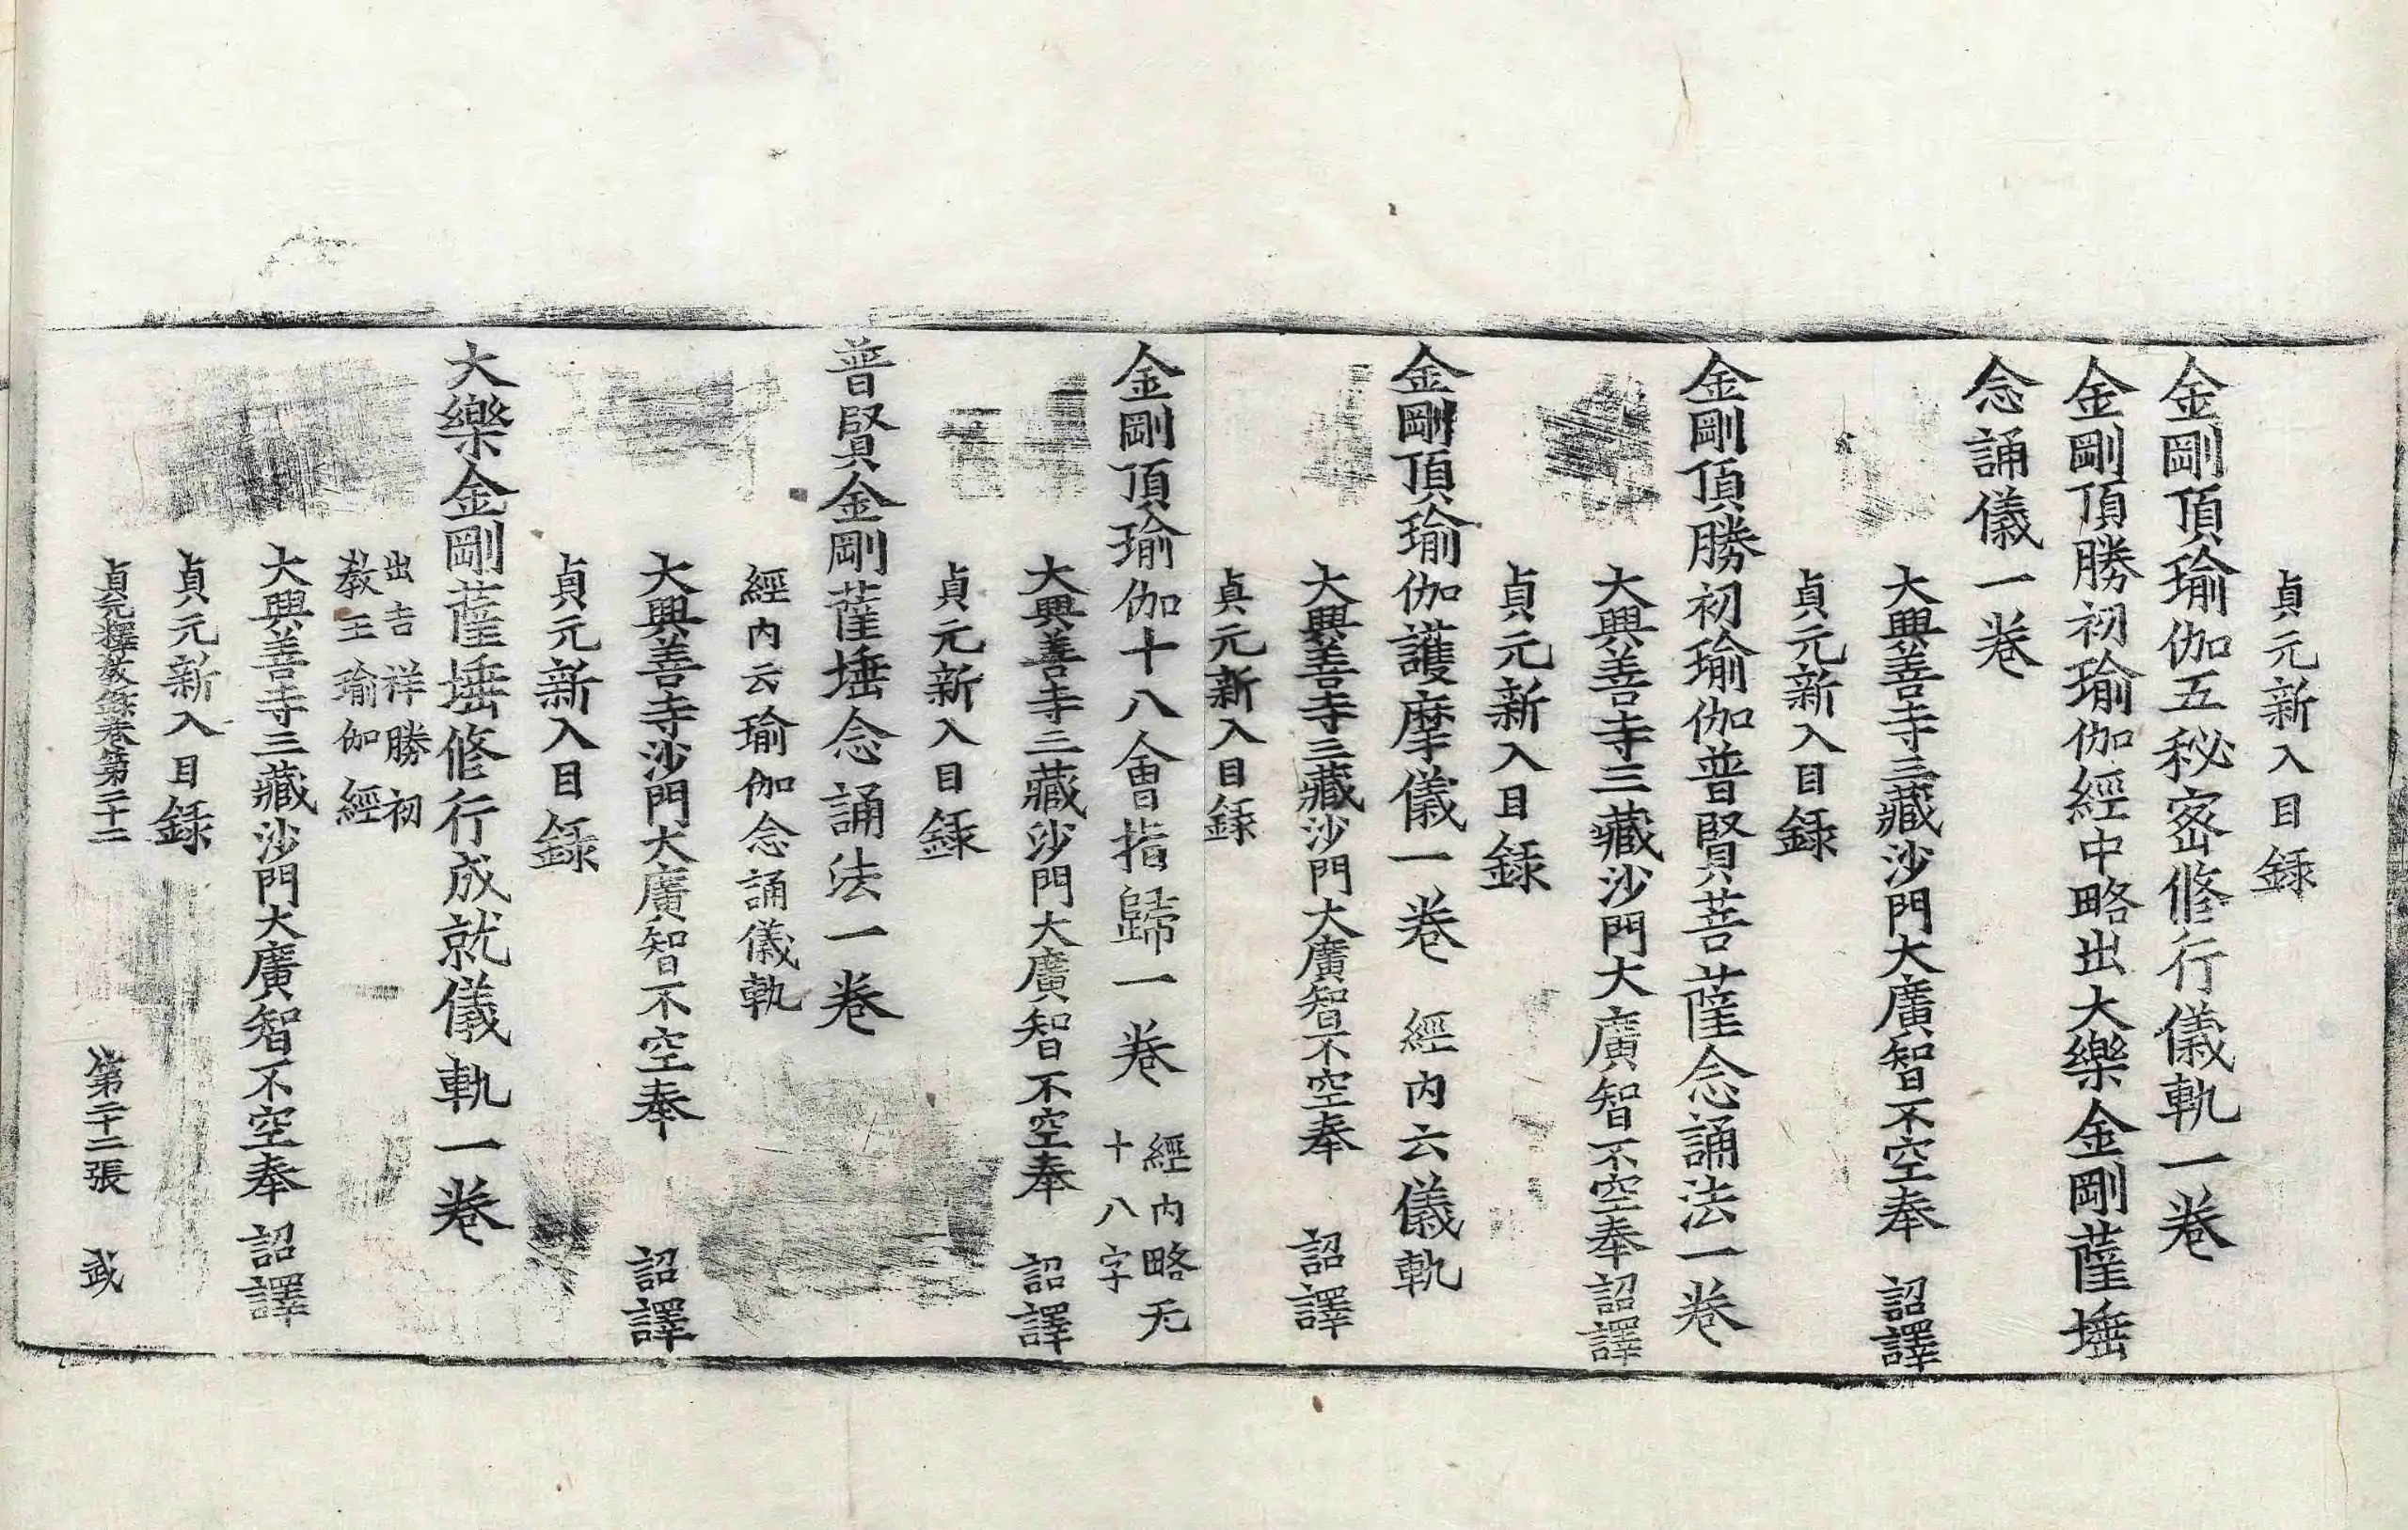 貞元新入目録
金剛頂瑜伽五秘宻修行儀軌一卷
金剛頂勝初瑜伽經中略出大樂金剛薩埵
念誦儀一卷
大興善寺三藏沙門大廣智不空奉 詔譯
貞元新入目録
金剛頂勝初瑜伽普賢菩薩念誦法一卷
大興善寺三藏沙門大廣智不空奉詔譯
貞元新入目録
金剛頂瑜伽護摩儀一卷 經内云儀軌
大興善寺三藏沙門大廣智不空奉 詔譯
貞元新入目録
金剛頂瑜伽十八會指歸一卷 經内略无
十八字
大興善寺三藏沙門大廣智不空奉 詔譯
貞元新入目録
普賢金剛薩埵念誦法一卷
經内云瑜伽念誦儀軌
大興善寺沙門大廣智不空奉 詔譯
貞元新入目録
大樂金剛薩埵修行成就儀軌一卷
出吉祥勝初
教王瑜伽經
大興善寺三藏沙門大廣智不空奉 詔譯
貞元新入目録
貞元釋教錄卷第二十二 第二十二張 武